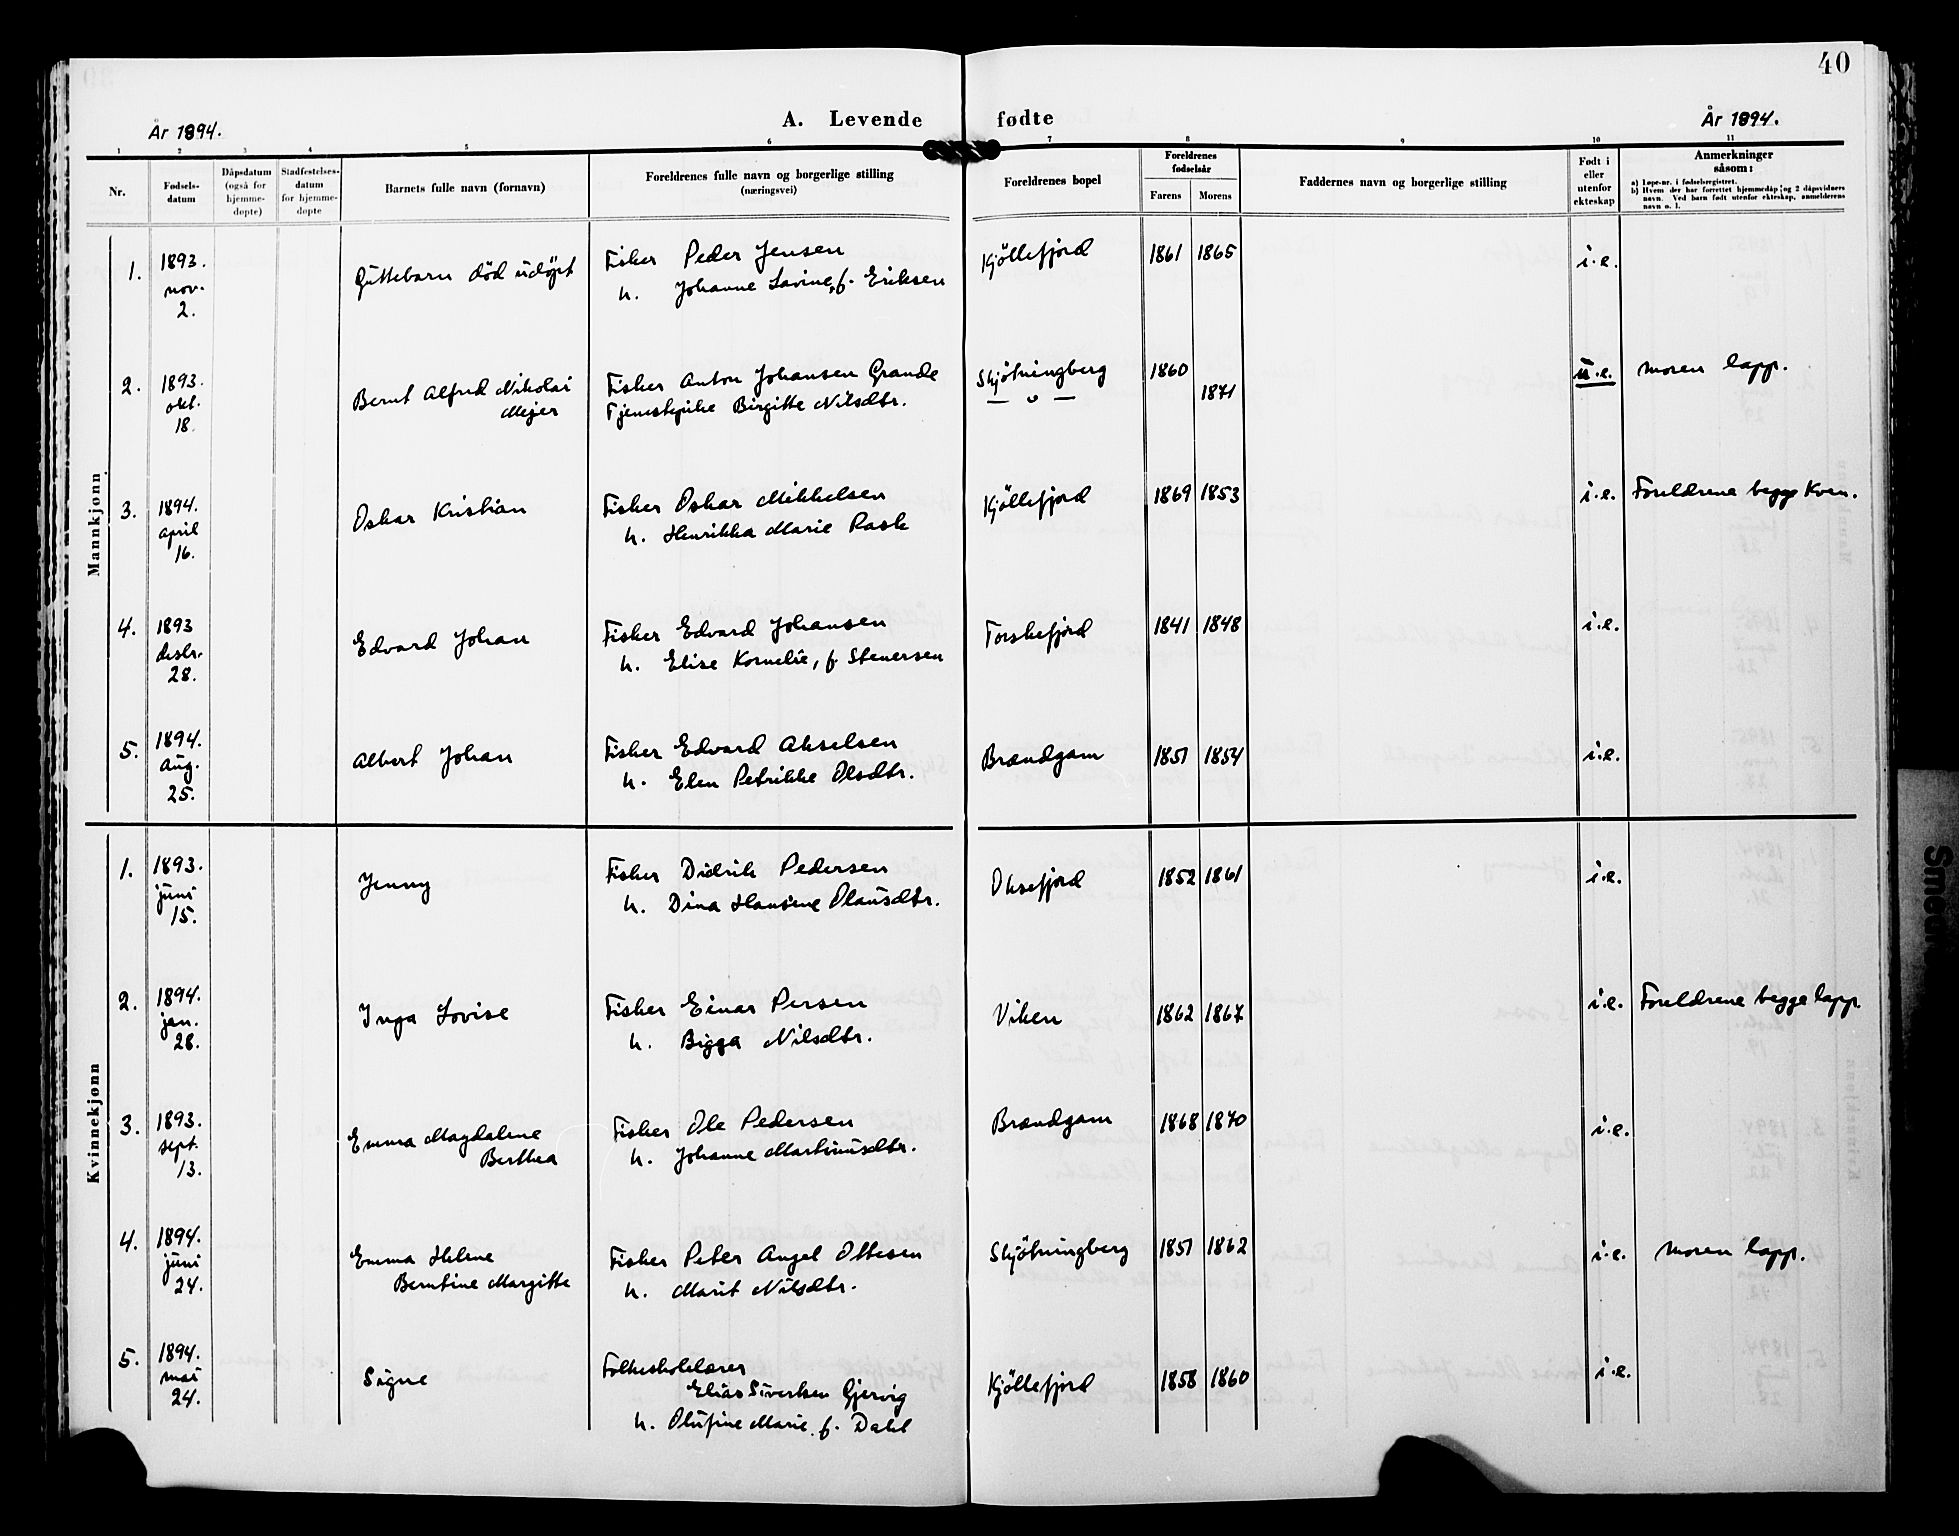 40
År 1894.
A. Levende fødte
År 1894.
1 2 3 4 5 6 7 8 9 10 11
Nr.
Fødsels-
datum
Dåpsdatum
(også for
hjemme-
døpte)
Stadfestelses-
datum
for hjemme-
døpte
Barnets fulle navn (fornavn)
Foreldrenes fulle navn og borgerlige stilling
(næringsvei)
Foreldrenes bopel
Foreldrenes
fødselsår
Farens Morens
Faddernes navn og borgerlige stilling
Født i
eller
utenfor
ekteskap
Anmerkninger
såsom:
a) Løpe-nr. i fødselsregistret.
b) Hvem der har forrettet hjemmedåp og 2 dåpsvidners
navn. Ved barn født utenfor ekteskap, anmelderens
navn o. l.
Mannkjønn
1. 1893. nov. 2. Guttebarn död udöpt Fisker Peder Jensen Kjöllefjord 1861 1865 i.e.
h. Johanne Lavine, f. Eriksen
2. 1893. okt. 18. Bernt Alfred Nikolai Fisker Anton Johansen Grande Skjötningberg 1860 u.e. Moren lapp.
Mejer Tjenestepike Birgitte Nilsdtr. — " — 1871
3. 1894. april 16. Oskar Kristian Fisker Oskar Mikkelsen Kjöllefjord 1869 1853 i.e. Foreldrene begge Kven.
h. Henrikka Marie Rask
4. 1893 desbr. 28. Edvard Johan Fisker Edvard Johansen Torskefjord 1841 1848 i.e.
h. Elise Kornelie, f. Stenersen
5. 1894. aug. 25. Albert Johan Fisker Edvard Akselsen Brændgam 1851 1854 i.e.
h. Elen Petrikke Olsdtr.
Kvinnekjønn
1. 1893. juni 15. Jenny Fisker Didrik Pedersen Oksefjord 1852 1861 i.e.
h. Dina Hansine Olausdtr.
2. 1894. jan. 28. Inga Lovise Fisker Einar Persen Viken 1862 1867 i.e. Foreldrene begge lapp.
h. Bigga Nilsdtr.
3. 1893. sept. 13. Emma Magdalene Fisker Ole Pedersen Brændgam 1868 1870 i.e.
Berthea h. Johanne Martinusdtr.
4. 1894. juni 24. Emma Helene Fisker Peter Angel Ottesen Skjötningberg 1851 1862 i.e. Moren lapp.
Berntine Margitte h. Marit Nilsdtr.
5. 1894. mai 24. Signe Folkeskolelærer Kjöllefjord 1858 1860 i.e.
Elias Sivertsen Gjervig
h. Olufine Marie, f. Dahl